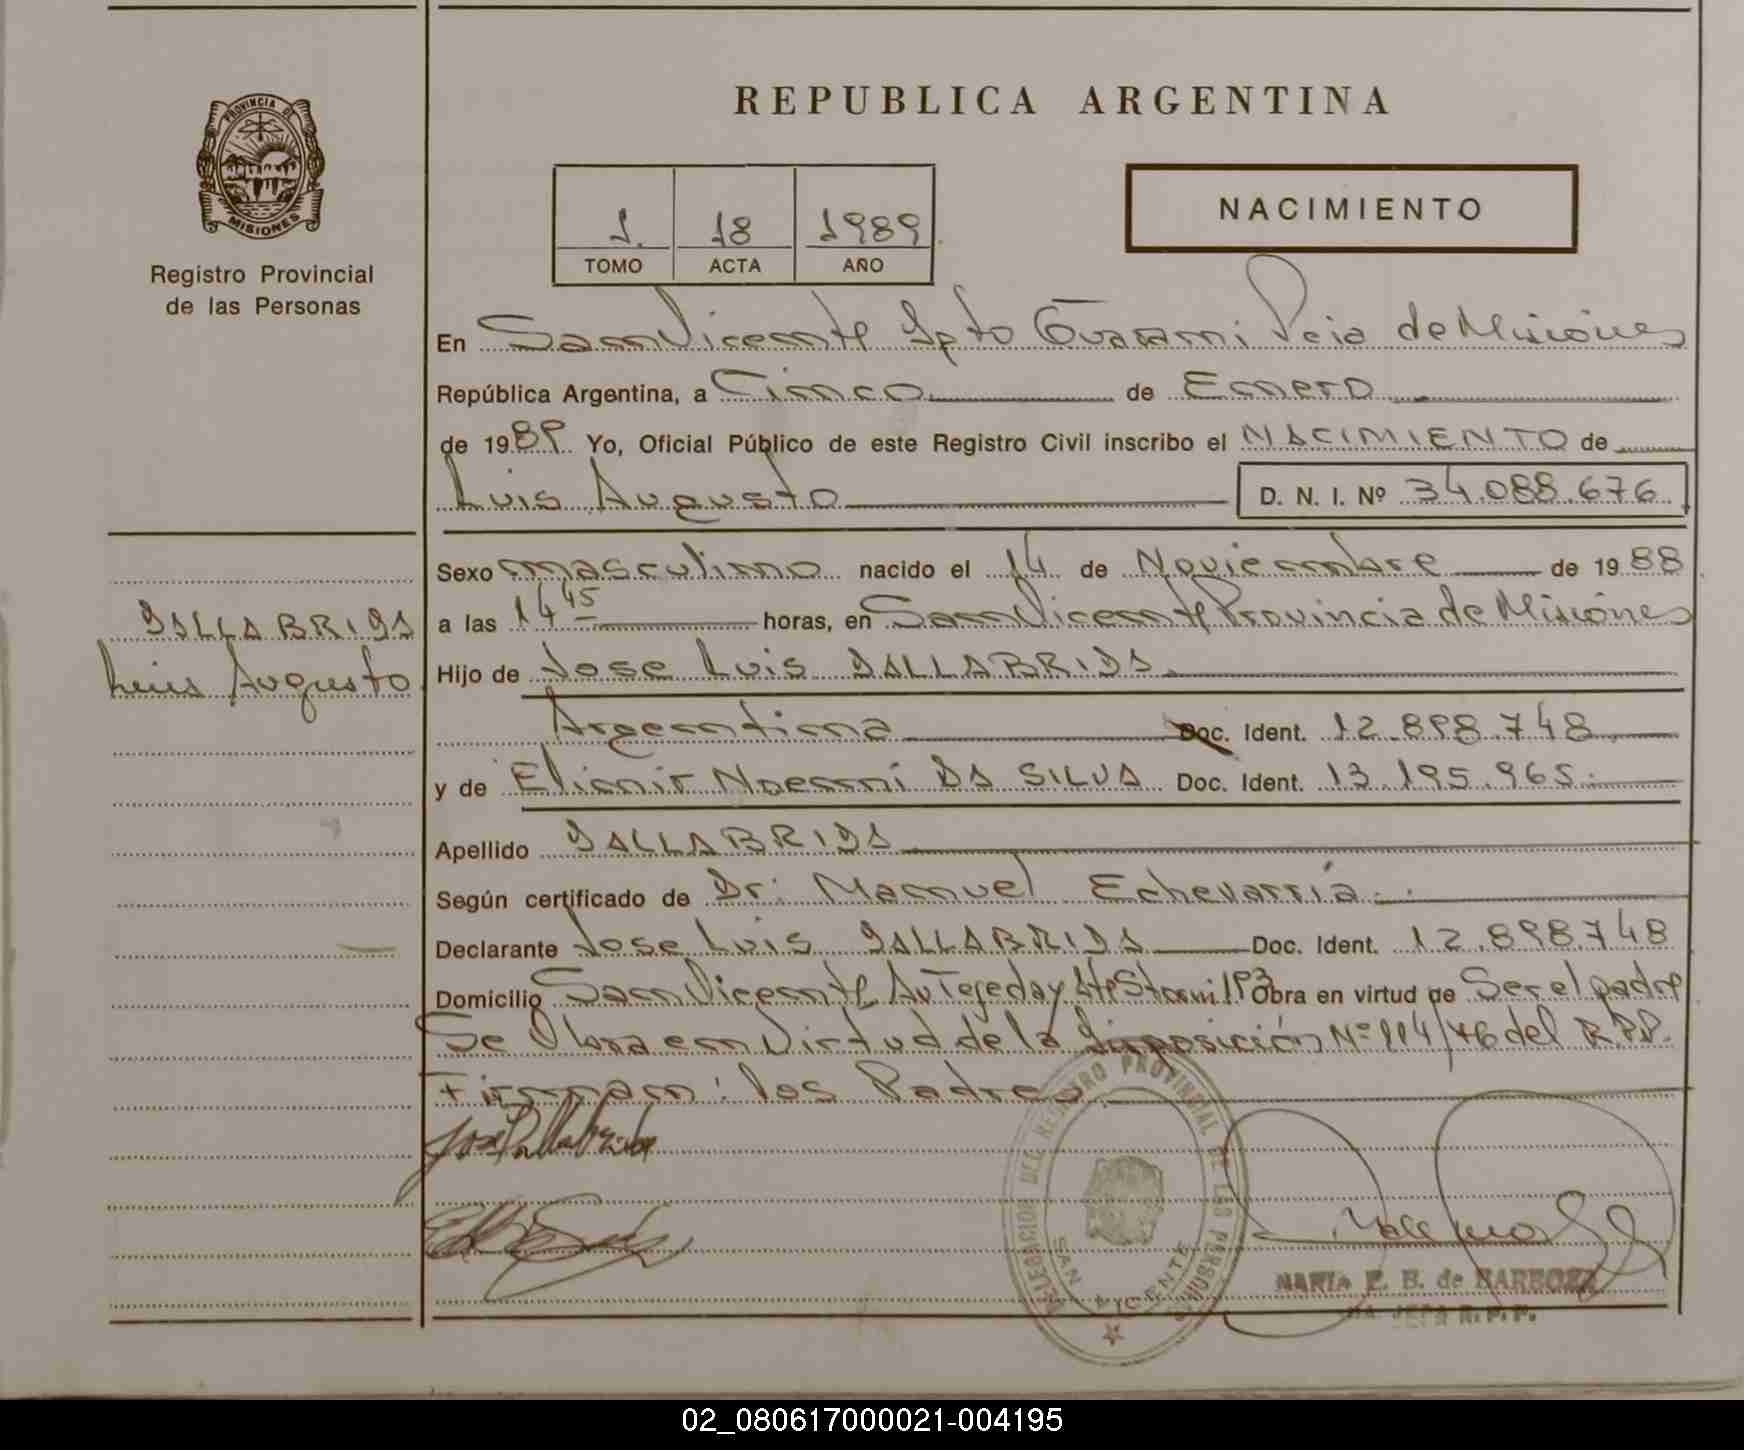 PROVINCIA DE
MISIONES
Registro Provincial
de las Personas
REPUBLICA ARGENTINA
1. 18 1989
TOMO ACTA AÑO
NACIMIENTO
En San Vicente Dpto Guarani Pcia de Misiónes
República Argentina, a Cinco de Enero
de 1989 Yo, Oficial Público de este Registro Civil inscribo el NACIMIENTO de
Luis Augusto D. N. I. Nº 34.088.676
DALLABRIDA
Luis Augusto
Sexo masculino nacido el 14 de Noviembre de 1988
a las 14 45 horas, en San Vicente Provincia de Misiónes
Hijo de Jose Luis DALLABRIDA
Argentina Doc. Ident. 12.898.748
y de Elionir Noemni DA SILVA Doc. Ident. 13.195.965
Apellido DALLABRIDA
Según certificado de Dr: Manuel Echevarría
Declarante Jose Luis DALLABRIDA Doc. Ident. 12.898748
Domicilio San Vicente Av Tejeda y Obra en virtud de Ser el padre
Se Obra en Virtud de la Disposición Nº 114/76 del R.P.P.
Firman: los Padres
DELEGACION DEL REGISTRO PROVINCIAL DE LAS PERSONAS
SAN VICENTE
MARIA E. B. de BARBOZA
JEFA R. P. P.
02_080617000021-004195